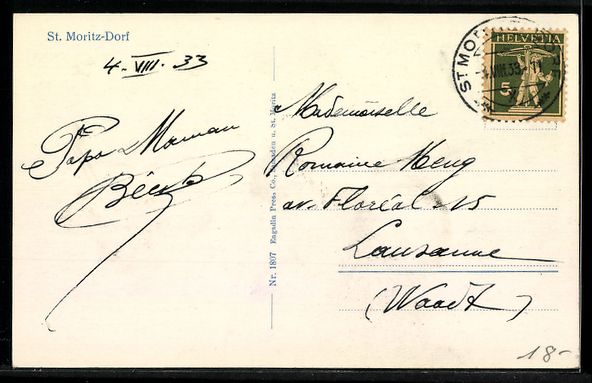 St. Moritz-Dorf
4. VIII. 33
Papa Maman
Nr. 1807 Engadin Pres. Co., Samaden u. St. Moritz
ST MO
VIII.33
HELVETIA
5
Mademoiselle
Romaine
av. Floréal 15
Lausanne
(Waadt)
18-